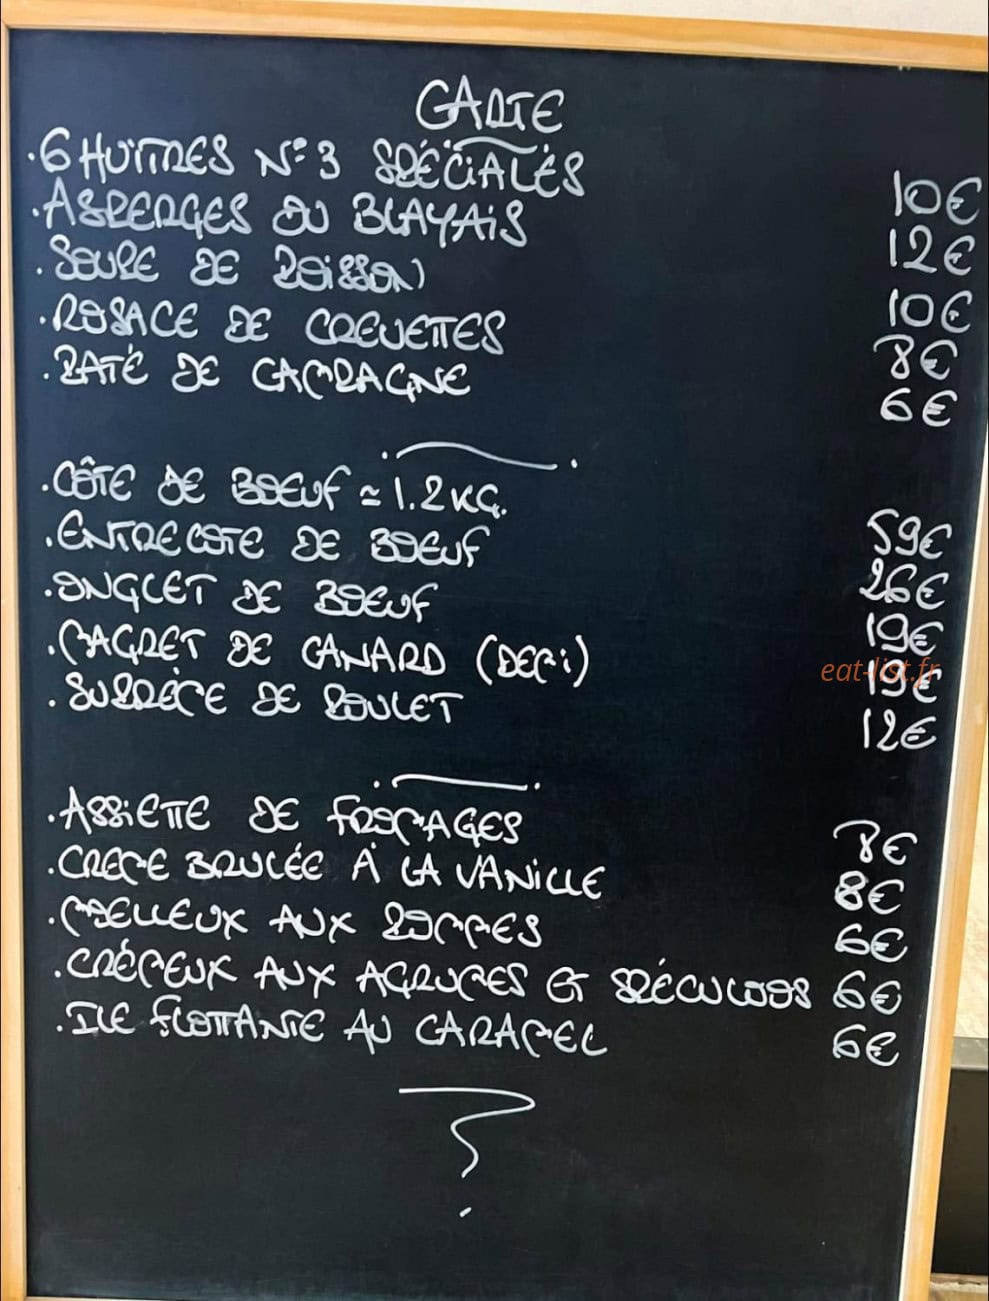 CARTE
. 6 HUÎTRES N°3 SPÉCIALES 10€
. ASPERGES DU BLAYAIS 12€
. SOUPE DE POISSON 10€
. ROSACE DE CREVETTES 8€
. PATÉ DE CAMPAGNE 6€
. CÔTE DE BOEUF ≃ 1.2 KG. 59€
. ENTRECOTE DE BOEUF 26€
. ONGLET DE BOEUF 19€
. MAGRET DE CANARD (DEMI) 19€
eat-list.fr
. SUPRÈME DE POULET 12€
. ASSIETTE DE FROMAGES 8€
. CREME BRULÉE À LA VANILLE 8€
. MOELLEUX AUX POMMES 6€
. CRÉMEUX AUX AGRUMES ET SPÉCULOOS 6€
. ILE FLOTTANTE AU CARAMEL 6€